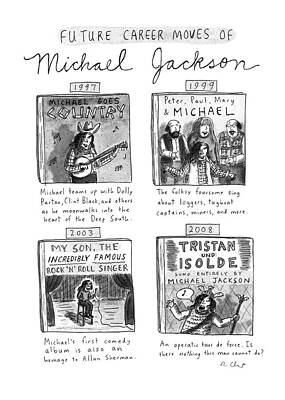 FUTURE CAREER MOVES OF
Michael Jackson
1997
MICHAEL GOES
COUNTRY
Michael teams up with Dolly
Parton, Clint Black, and others
as he moonwalks into the
heart of the Deep South.
1999
Peter, Paul, Mary
& MICHAEL
The folksy foursome sing
about loggers, tugboat
captains, miners, and more.
2003
MY SON, THE
INCREDIBLY FAMOUS
ROCK 'N' ROLL SINGER
Michael's first comedy
album is also an
homage to Allan Sherman.
2008
TRISTAN
UND
ISOLDE
SUNG ENTIRELY BY
MICHAEL JACKSON
An operatic tour de force. Is
there nothing this man cannot do?
R. Chst